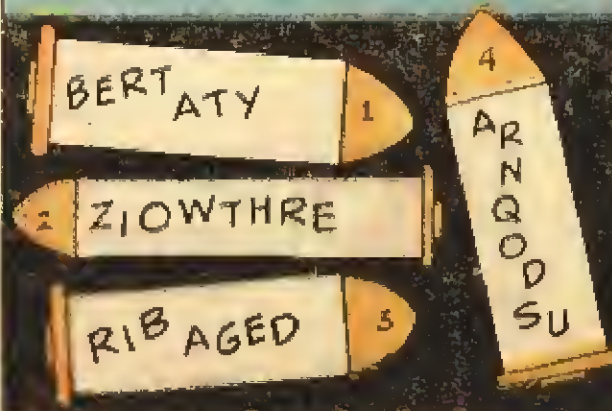 BERT ATY 1
2 ZIOWTHRE
RIB AGED 3
4 ARNQODSU